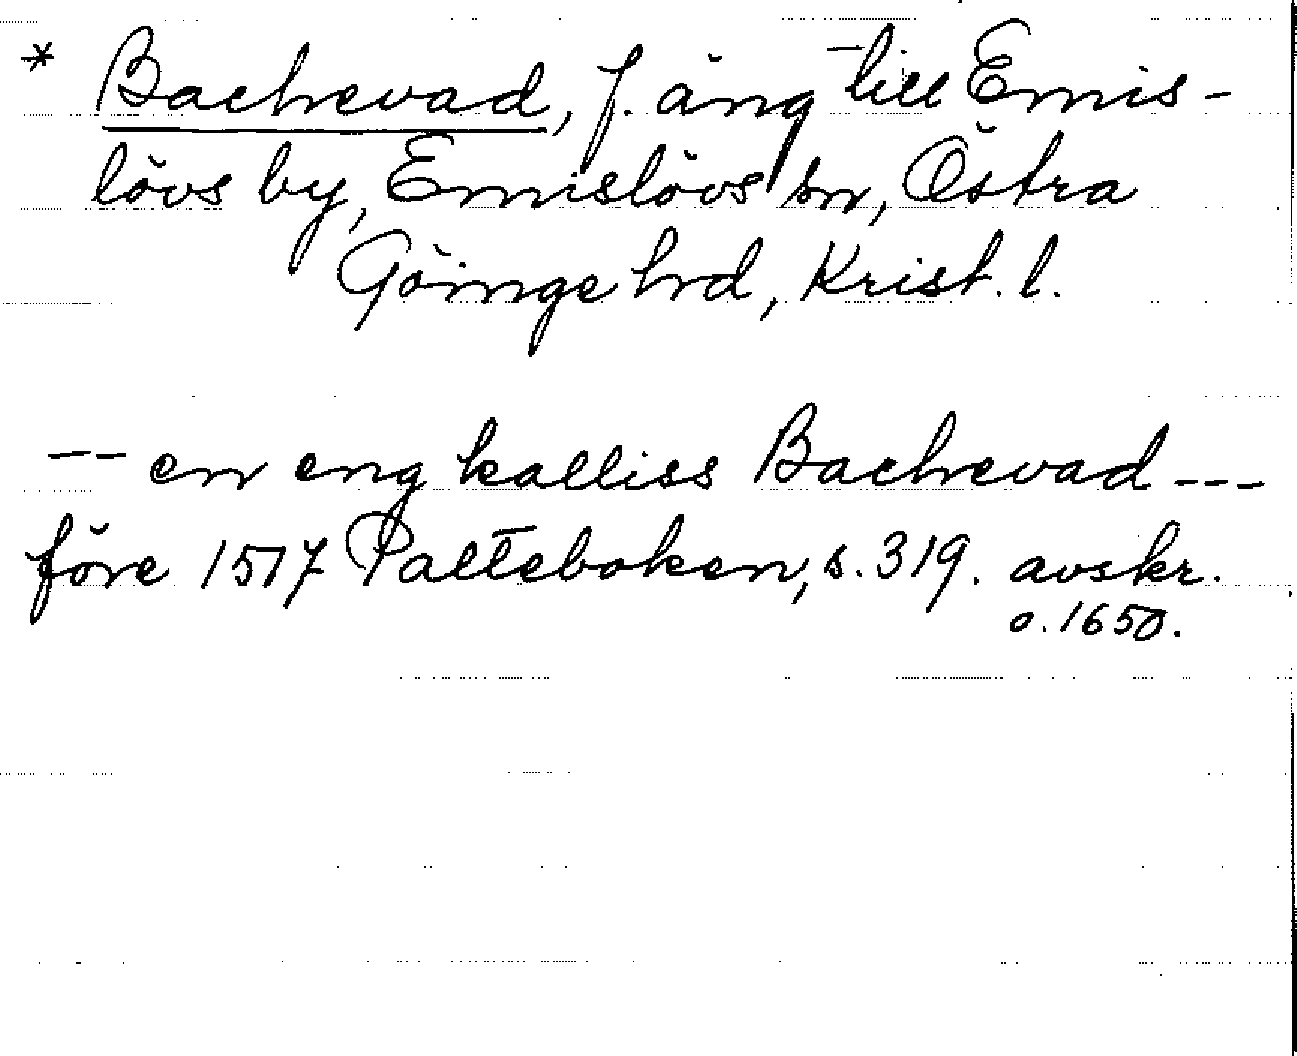 * Bachevad, f. äng till Emis-
lövs by, Emislövs sn, Östra
Göinge hrd, Krist. l.
-- en eng kalliss Bachevad ---
före 1517 Palteboken, s. 319. avskr.
o. 1650.